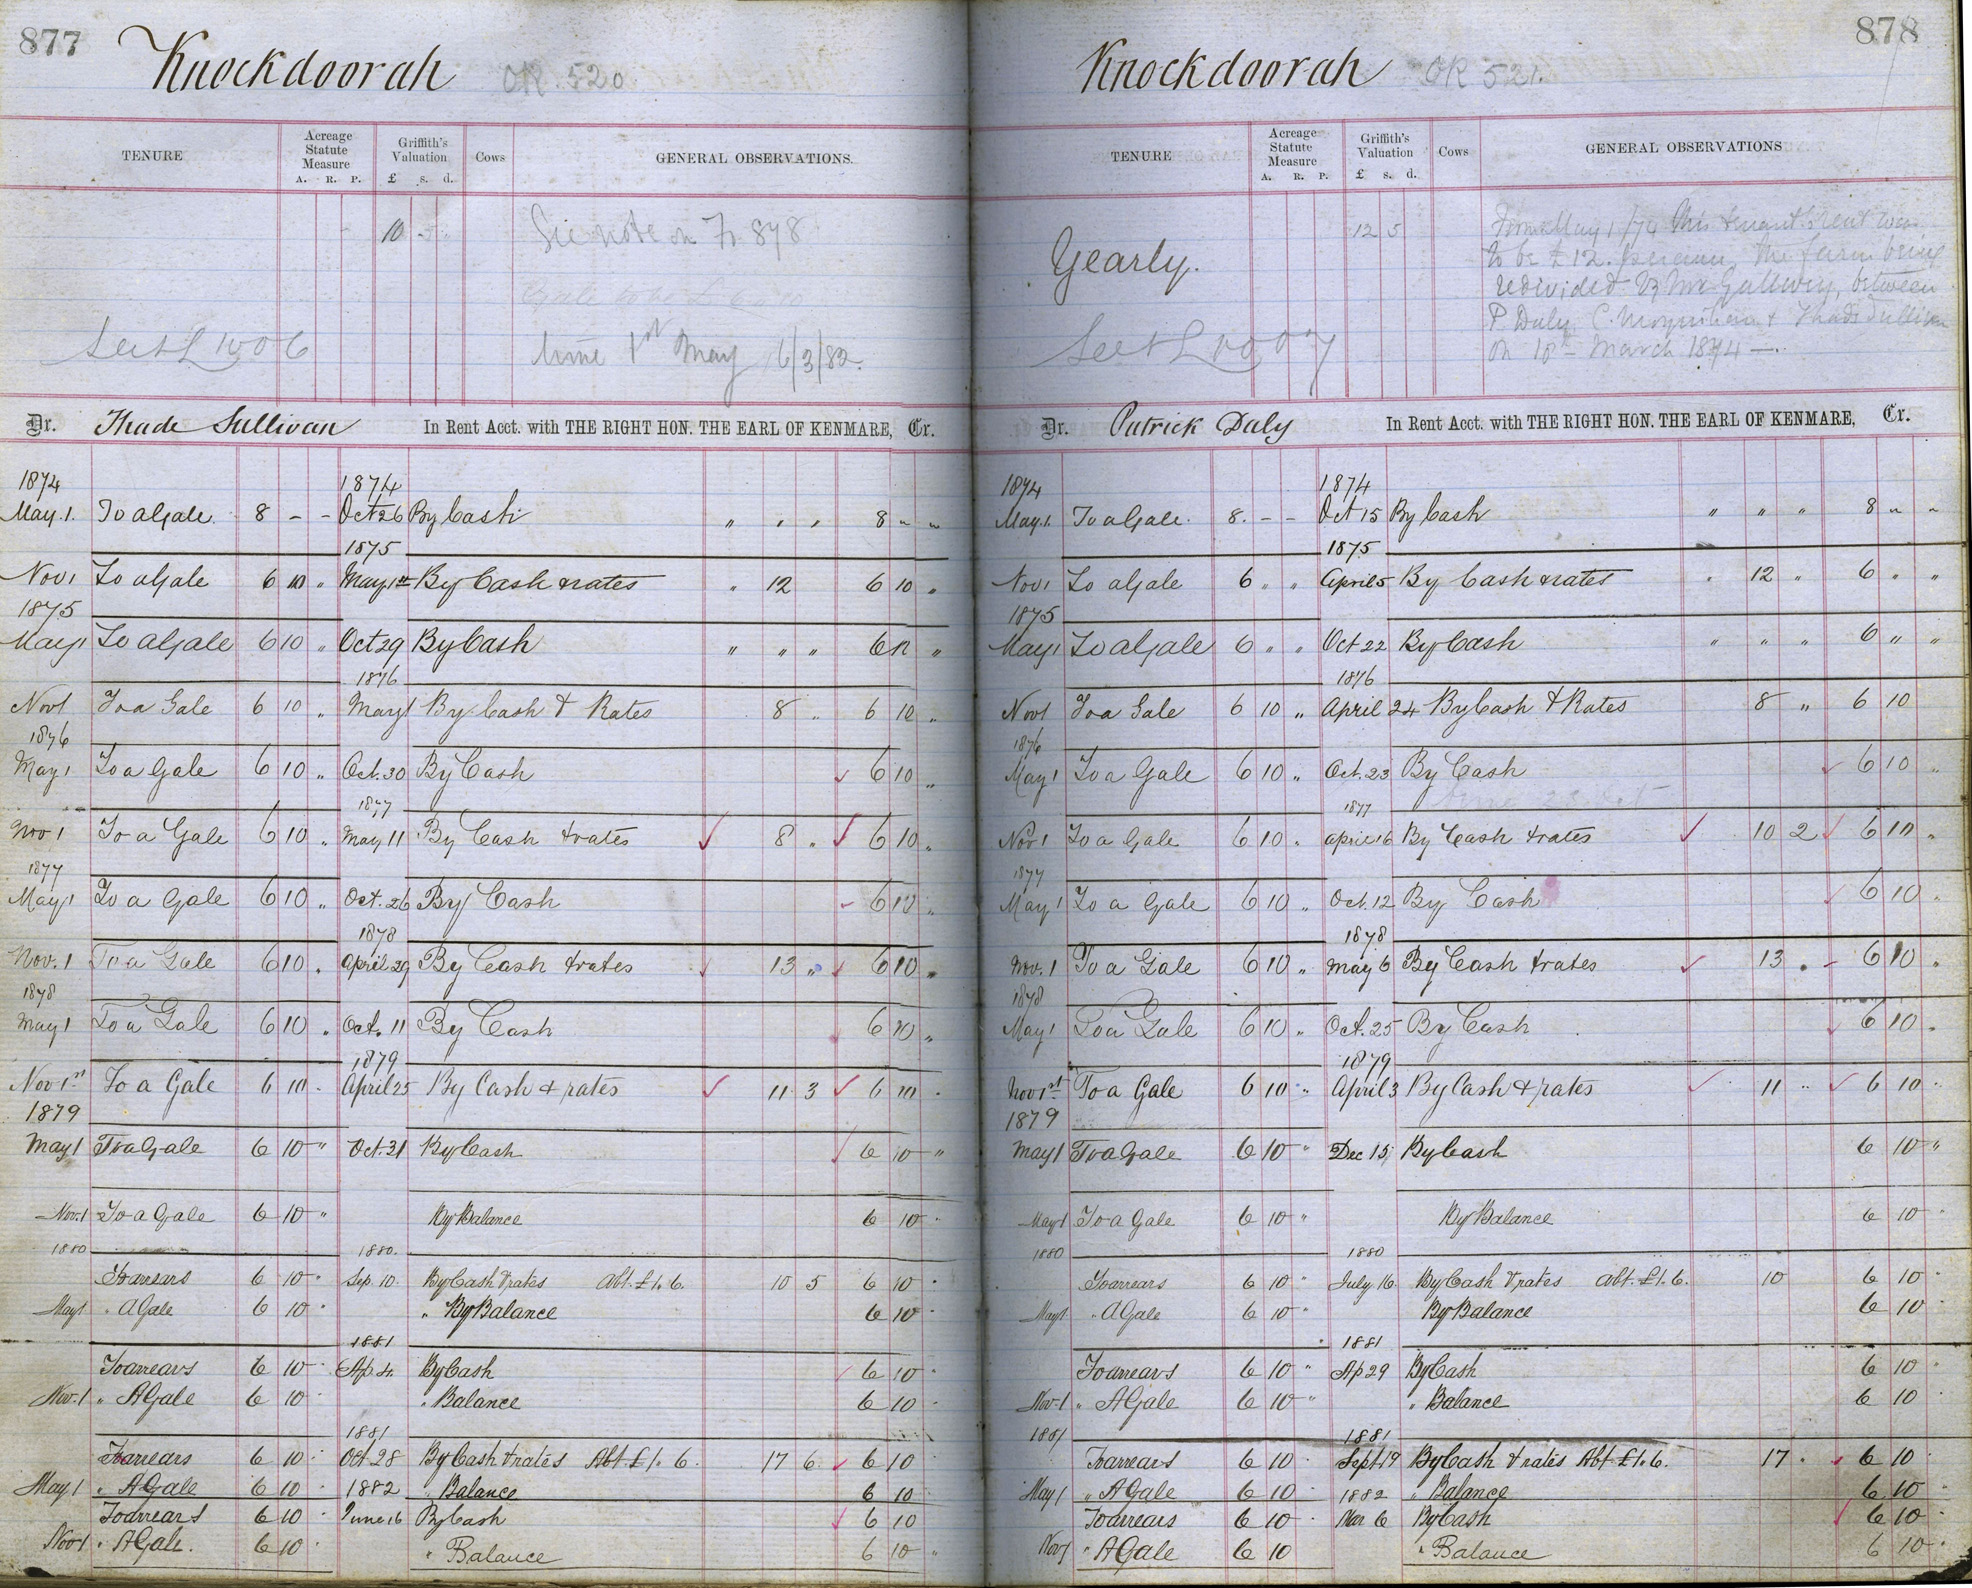 877
Knockdoorah OR. 520
TENURE Acreage Statute Measure A. R. P. Griffith's Valuation £ s. d. Cows GENERAL OBSERVATIONS.
10 5 See note on Fo 878
Gale to be £
time 1st May 16/3/82.
Dr. Thade Sullivan In Rent Acct. with THE RIGHT HON. THE EARL OF KENMARE, Cr.
1874 1874
May. 1. To a Gale. 8 - - Oct 26 By Cash " " " 8 " "
1875
Nov 1 To a Gale 6 10 " May 1st By Cash & rates " 12 6 10 "
1875
May 1 To a Gale 6 10 " Oct 29 By Cash " " " 6 10 "
1876
Nov 1 To a Gale 6 10 " May 1 By Cash & Rates 8 " 6 10 "
1876
May 1 To a Gale 6 10 " Oct. 30 By Cash 6 10 "
1877
Nov 1 To a Gale 6 10 " May 11 By Cash & rates 8 " 6 10 "
1877
May 1 To a Gale 6 10 " Oct. 26 By Cash 6 10 "
1878
Nov. 1 To a Gale 6 10 " April 29 By Cash & rates 13 " 6 10 "
1878
May 1 To a Gale 6 10 " Oct. 11 By Cash 6 10 "
1879
Nov 1st To a Gale 6 10 " April 25 By Cash & rates 11 3 6 10 "
1879
May 1 To a Gale 6 10 " Oct. 21 By Cash 6 10 "
Nov. 1 To a Gale 6 10 " By Balance 6 10 "
1880 1880.
To arrears 6 10 " Sep. 10. By Cash & rates Abt. £1. 6. 10 5 6 10 "
May 1 " A Gale 6 10 " " By Balance 6 10 "
1881
To arrears 6 10 " Ap. 4. By Cash 6 10 "
Nov. 1 " A Gale 6 10 " " Balance 6 10 "
1881
To arrears 6 10 " Oct 28 By Cash & rates Abt £1. 6. 17 6 6 10
May 1 " A Gale 6 10 " 1882 " Balance 6 10
To arrears 6 10 " June 16 By Cash 6 10
Nov 1 " A Gale. 6 10 " " Balance 6 10 "
878
Knockdoorah OR 521.
TENURE Acreage Statute Measure A. R. P. Griffith's Valuation £ s. d. Cows GENERAL OBSERVATIONS
Yearly. 12 5
From May 1/74 this tenant's rent was
to be £12. per ann, the farm being
redivided by Mr Gallwey, between
P. Daly, C. Moynihan & Thade Sullivan
on 18th March 1874 —.
Dr. Patrick Daly In Rent Acct. with THE RIGHT HON. THE EARL OF KENMARE, Cr.
1874 1874
May. 1. To a Gale. 8. - - Oct 15 By Cash " " " 8 " "
1875
Nov 1 To a Gale 6 " " April 5 By Cash & rates " 12 " 6 " "
1875
May 1 To a Gale 6 " " Oct 22 By Cash " " " 6 " "
1876
Nov 1 To a Gale 6 10 " April 24 By Cash & Rates 8 " 6 10
1876
May 1 To a Gale 6 10 " Oct. 23 By Cash 6 10 "
1877
Nov 1 To a Gale 6 10 " April 16 By Cash & rates 10 2 6 10 "
1877
May 1 To a Gale 6 10 " Oct. 12 By Cash 6 10 "
1878
Nov. 1 To a Gale 6 10 " May 6 By Cash & rates 13 " 6 10 "
1878
May 1 To a Gale 6 10 " Oct. 25 By Cash 6 10 "
1879
Nov 1st To a Gale 6 10 " April 3 By Cash & rates 11 " 6 10 "
1879
May 1 To a Gale 6 10 " Dec 15 By Cash 6 10 "
May 1 To a Gale 6 10 " By Balance 6 10 "
1880 1880
To arrears 6 10 " July 16 By Cash & rates Abt. £1. 6. 10 6 10 "
May 1 " A Gale 6 10 " By Balance 6 10 "
1881
To arrears 6 10 " Ap 29 By Cash 6 10 "
Nov. 1 " A Gale 6 10 " " Balance 6 10
1881 1881
To arrears 6 10 " Sept 19 By Cash & rates Abt £1. 6. 17 . 6 10 "
May 1 " A Gale 6 10 " 1882 " Balance 6 10 "
To arrears 6 10 " Mar 6 By Cash 6 10 "
Nov 1 " A Gale 6 10 " Balance 6 10 "